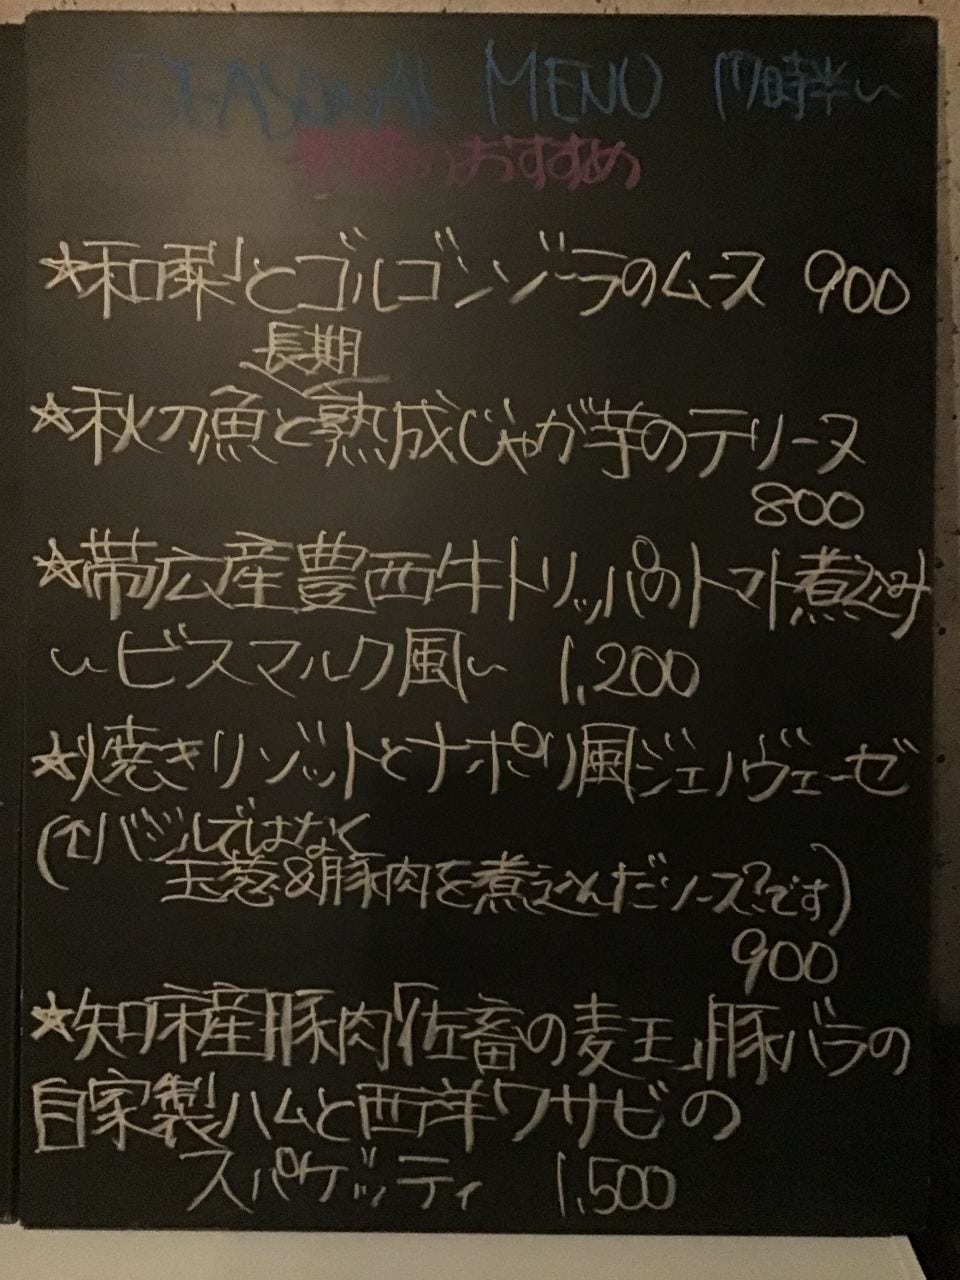 SEASONAL MENU 17時半〜
季節のおすすめ
☆和梨とゴルゴンゾーラのムース 900
長期
☆秋刀魚と熟成じゃが芋のテリーヌ
800
☆帯広産豊西牛トリッパのトマト煮込み
〜ビスマルク風〜 1,200
☆焼きリゾットとナポリ風ジェノヴェーゼ
(↑バジルではなく
玉葱&豚肉を煮込んだソース?です)
900
☆知床産豚肉「佐畜の麦王」豚バラの
自家製ハムと西洋ワサビの
スパゲッティ 1,500